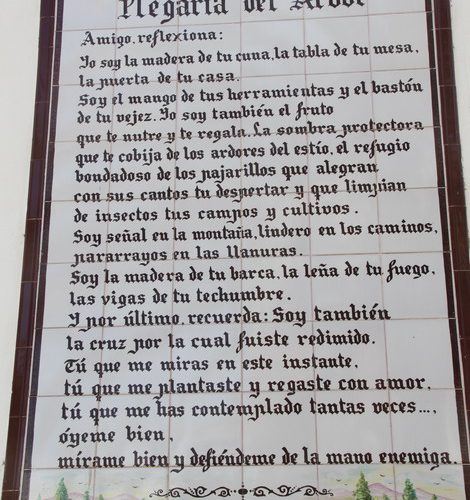 Plegaria del Árbol
Amigo, reflexiona:
Yo soy la madera de tu cuna, la tabla de tu mesa,
la puerta de tu casa.
Soy el mango de tus herramientas y el bastón
de tu vejez. Yo soy también el fruto
que te nutre y te regala. La sombra protectora
que te cobija de los ardores del estío, el refugio
bondadoso de los pajarillos que alegran
con sus cantos tu despertar y que limpian
de insectos tus campos y cultivos.
Soy señal en la montaña, lindero en los caminos,
pararrayos en las llanuras.
Soy la madera de tu barca, la leña de tu fuego,
las vigas de tu techumbre.
Y por último, recuerda: Soy también
la cruz por la cual fuiste redimido.
Tú que me miras en este instante,
tú que me plantaste y regaste con amor,
tú que me has contemplado tantas veces...,
óyeme bien,
mírame bien y defiéndeme de la mano enemiga.